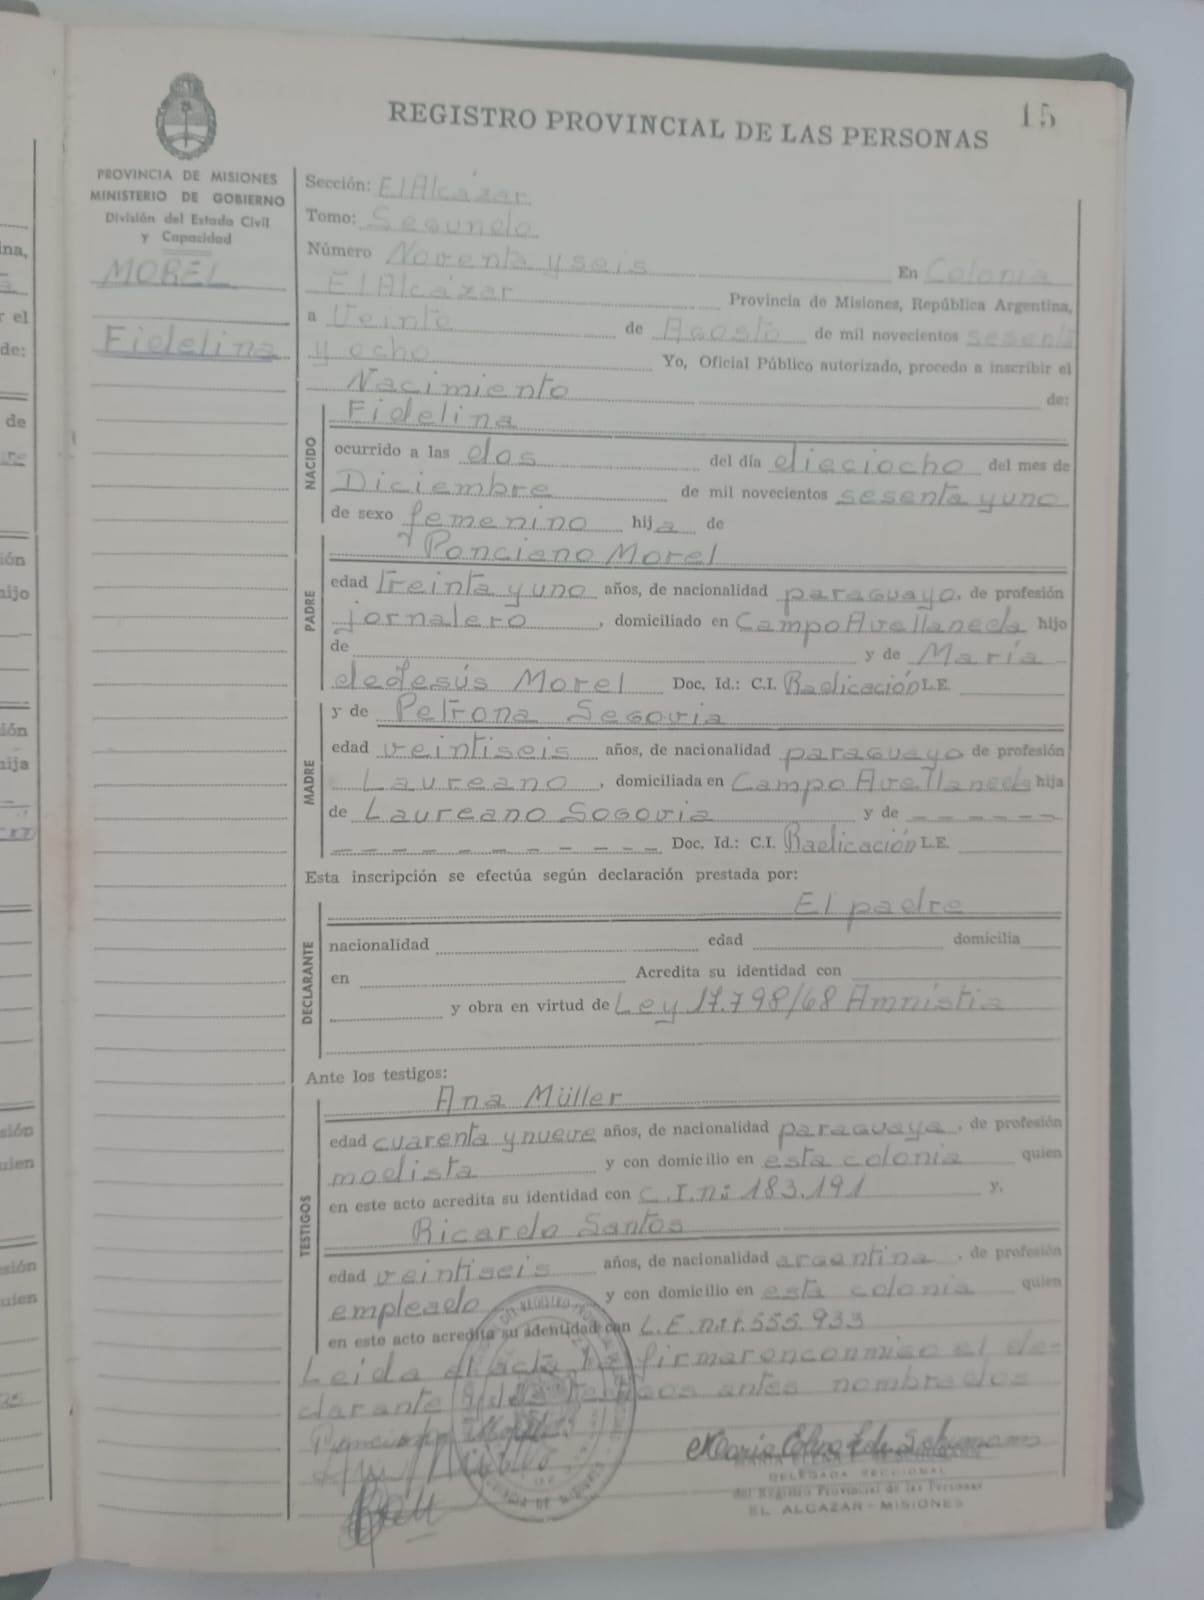 15
REGISTRO PROVINCIAL DE LAS PERSONAS
PROVINCIA DE MISIONES
MINISTERIO DE GOBIERNO
División del Estado Civil
y Capacidad
MOREL
Fidelina
Sección: El Alcázar
Tomo: Segundo
Número Noventa y seis En Colonia
El Alcázar Provincia de Misiones, República Argentina,
a Veinte de Agosto de mil novecientos sesenta
y ocho Yo, Oficial Público autorizado, procedo a inscribir el
Nacimiento de:
NACIDO
Fidelina
ocurrido a las dos del día dieciocho del mes de
Diciembre de mil novecientos sesenta y uno
de sexo femenino hija de
PADRE
Ponciano Morel
edad treinta y uno años, de nacionalidad paraguayo, de profesión
jornalero, domiciliado en Campo Avellaneda hijo
de y de María
de Jesús Morel Doc. Id.: C.I. Radicación L.E.
MADRE
y de Petrona Segovia
edad veintiseis años, de nacionalidad paraguayo de profesión
Laureano, domiciliada en Campo Avellaneda hija
de Laureano Segovia y de — — — — — —
— — — — — — — — — — — Doc. Id.: C.I. Radicación L.E.
Esta inscripción se efectúa según declaración prestada por:
DECLARANTE
El padre
nacionalidad edad domicilia
en Acredita su identidad con
y obra en virtud de Ley 17.798/68 Amnistia
Ante los testigos:
TESTIGOS
Ana Müller
edad cuarenta y nueve años, de nacionalidad paraguaya, de profesión
modista y con domicilio en esta colonia quien
en este acto acredita su identidad con C.I.n: 183.191 y,
Ricardo Santos
edad veintiseis años, de nacionalidad argentina, de profesión
empleado y con domicilio en esta colonia quien
en este acto acredita su identidad con L.E. 555.933
Leida el acta la firmaron conmigo el de-
clarante y los testigos antes nombrados
DELEGADA SECCIONAL
del Registro Provincial de las Personas
EL ALCAZAR - MISIONES